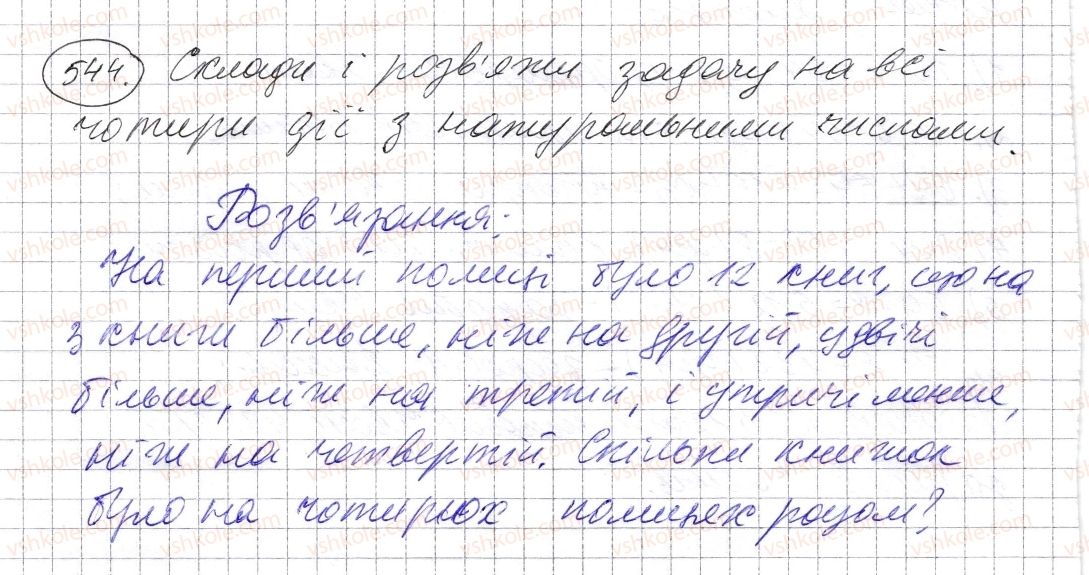 544. Склади і розв'яжи задачу на всі
чотири дії з натуральними числами.
Розв'язання:
На першій полиці було 12 книг, що на
3 книги більше, ніж на другій, удвічі
більше, ніж на третій, і утричі менше,
ніж на четвертій. Скільки книжок
було на чотирьох полицях разом?